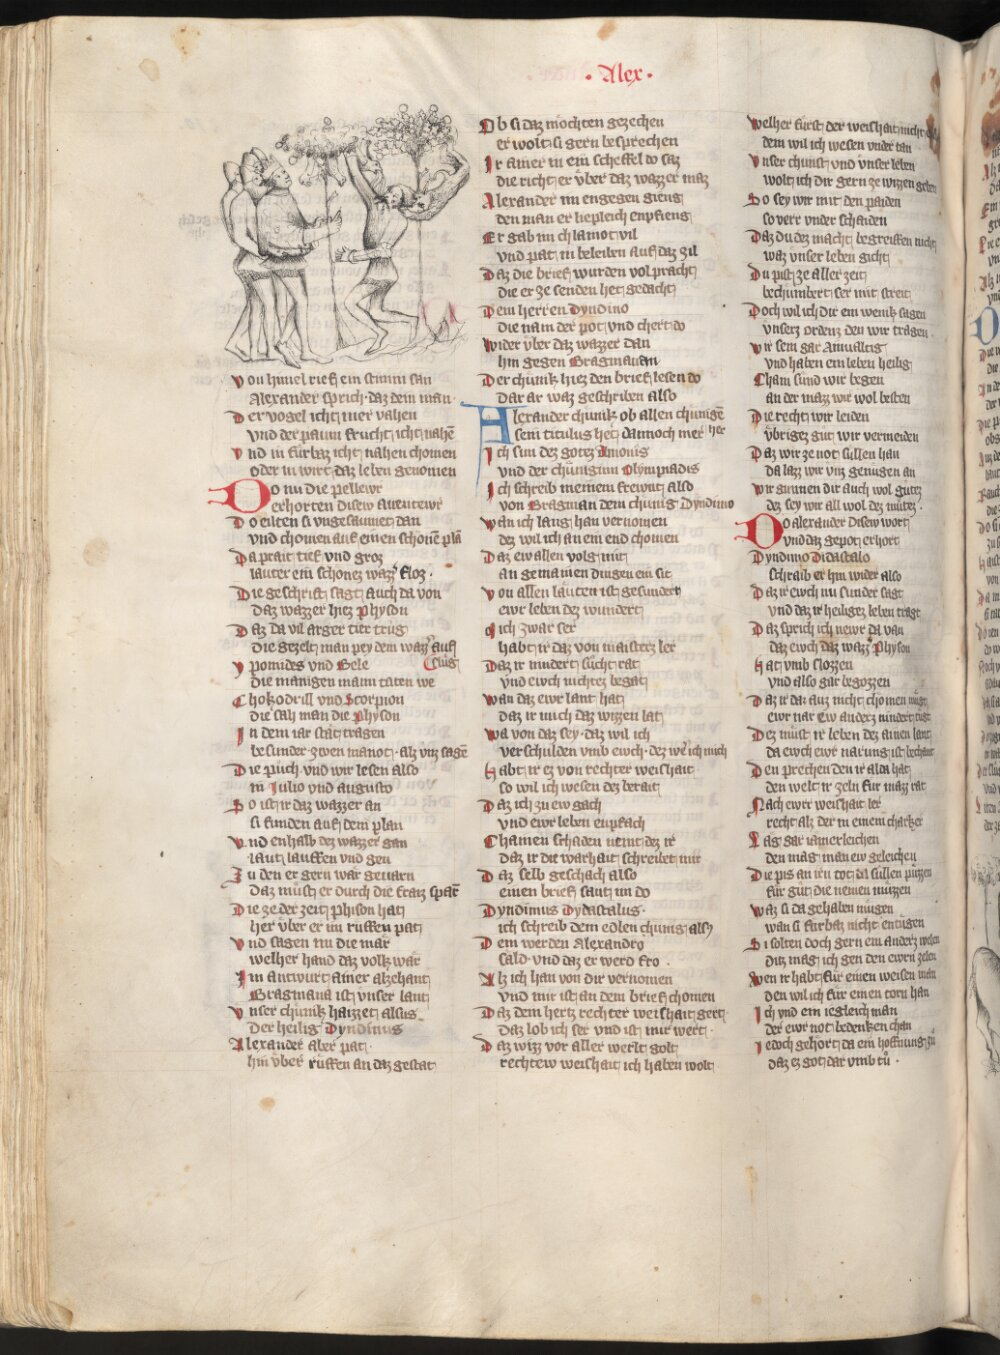 · Alex ·
Von himel rief ein stimm san
Alexander sprich · daz dem man ·
Der vogel icht mer vahen
Vnd der paum frucht icht nahē
Vnd in fürbaz icht nahen chomen
oder in wirt daz leben genomen
Do nu die pellewr
erhorten disew auentewr
Do eilten si vngesaumet dan
vnd chomen auf einen schonē plā
Da prait tief vnd groz
lauter ein schonez wazz̄ floz ·
Die geschrift sagt auch da von
daz wazzer hiez Physon
Daz da vil arger tier trug
die gezelt man pey dem wazz̄ auf
Ypomides vnd Bele
die manigen mann taten we
Chokodrill vnd Scorpion
die sah man die Physon
In dem iar stat tragen
besunder · zwen manot · alz vnz sagē
Die puch · vnd wir lesen also
in Iulio vnd augusto
So ist ir daz wazzer an
si funden auf dem plan
Vnd enhalb dez wazzer gan
laut lauffen vnd gen
Zu den er gern war geuarn
daz must er durch die fraiz sparē
Die ze der zeit phison hat
her vber er im ruffen pat
Vnd sagen nu die mär
welher hand daz volk wär
Im antwurt ainer alzehant
Bragmana ist vnser lant
Vnser chunk haizzet alsus
der heilig Dyndinus
Alexander aber pat ·
hin vber ruffen an daz gestat
Ob si daz mochten gezechen
er wolt si gern besprechen
Ir ainer in ein scheffel do saz
die richt er vber daz wazzer maz
Alexander im engegen gieng
den man er liepleich enpfieng
Er gab im chlainot vil
vnd pat in beleiben auf daz zil
Daz die brief wurden volpracht
die er ze senden het gedacht
Dem herren Dyndino
die nam der pot vnd chert do
Wider vber daz wazzer dan
hin gegen Bragmanan
Der chunk hiez den brief lesen do
Dar ar waz geschriben also
Alexander chunk ob allen chunigē
sein titulus het dannoch mer her
Ich sun dez gotez Amonis
vnd der chunigiun Olympiadis
Ich schreib meinem frewnt also
von Bragman dem chunig Dyndimo
Wan ich lang han vernomen
dez wil ich an ein end chomen
Daz ew allen volgt mit
an gemainen dingen ein sit
Von allen lauten ist gesundert
ewr leben dez wundert
Mich zwar ser
habt ir daz von maisterz ler
Daz ir nindert sucht rat
vnd ewch nichtez begat
Wan daz ewr lant hat
daz ir mich daz wizzen lat
Wa von daz sey · daz wil ich
verschulden vmb ewch · dez wē ich mich
Habt ir ez von rechter weishait
so wil ich wesen dez berait
Daz ich zu ew gach
vnd ewr leben enpfach
Chainen schaden nemt dez ir
daz ir die warhait schreibet mir
Daz selb geschach also
einen brief sant im do
Dyndimus Dydastalus ·
ich schreib dem edlen chunig alsus
Dem werden Alexandro
sald · vnd daz er werd fro ·
Alz ich han von dir vernomen
vnd mir ist an dem brief chomen
Daz dein hertz rechter weishait gert
daz lob ich ser vnd ist mir wert ·
Daz wizz vor aller werlt golt
rechtew weishait ich haben wolt
Welher furst der weishait nicht
dem wil ich wesen vnder tan
Vnser chunst vnd vnser leben
wolt ich dir gern ze wizzen geben
So sey wir mit den paiden
so verr vnder schaiden
Daz du dez macht begreiffen nicht
waz vnser leben gicht
Du pist ze aller zeit
bechumbert ser mit streit
Doch wil ich dir ein wenik sagen
vnserz ordenz den wir tragen ·
Wir sein gar ainualtig
vnd haben ein leben heilig
Chain sund wir begen
an der mazz wir wol besten
Die recht wir leiden
vbrigez gut wir vermeiden
Daz wir ze not sullen han
da lazz wir vnz genugen an
Wir gunnen dir auch wol gutez
dez sey wir all wol dez mutez ·
Do alexander disew wort
vnd daz gepot erhort
Dyndimo Didastalo
schraib er hin wider also
Daz ir ewch nu sunder sagt
vnd daz ir heiligez leben tragt
Daz sprich ich newr da van
daz ewch daz wazz̄ Physon
Hat vmb slozzen
vnd also gar begozzen
Daz ir dar auz nicht chomen mugt
ewr nar ew anderz nindert tugt
Dez must ir leben dez ainen lant
da ewch ewr narung ist bechant
Den prechen den ir alda hat
den welt ir zeln fur mazz rat
Nach ewr weishait ler
recht alz der in einem charker
Lag gar iamerleichen
den mag man ew geleichen
Die pis an irn tot da sullen puzzen
fur gut die nemen muzzen
Waz si da gehaben mugen
wan si furbaz nicht entugen
Si solten doch gern ein anderz wesen
Ditz mag ich gen den ewrn zelen
Wen ir habt fur einen weisen man
den wil ich fur einen torn han
Ich vnd ein iegleich man
der ewr not bedenken chan
Iedoch gehort da ein hoffnung zu
daz ez got dar vmb tu ·